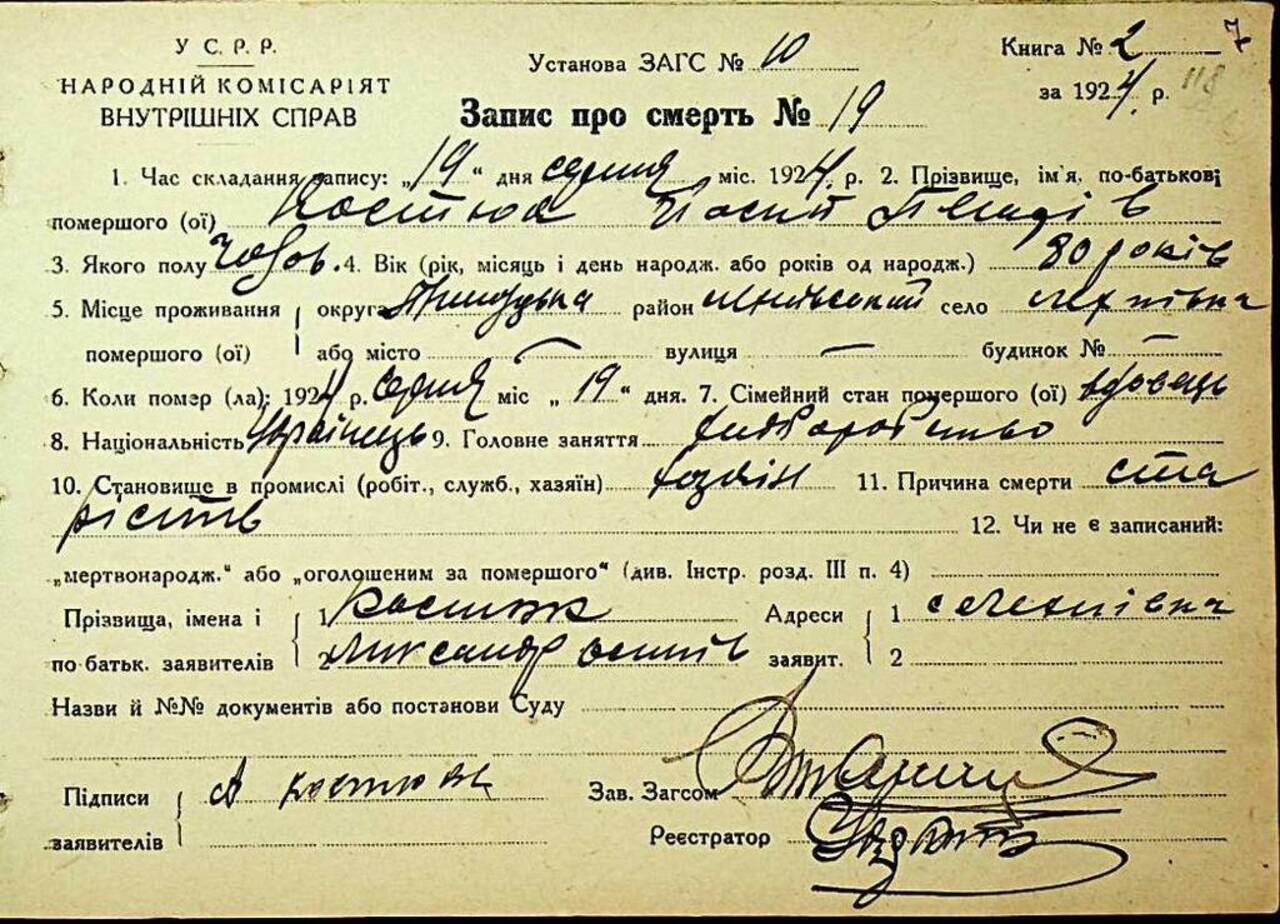 У С. Р. Р.
НАРОДНІЙ КОМІСАРІЯТ
ВНУТРІШНІХ СПРАВ
Установа ЗАГС № 10
Книга № 2
7
за 1924 р. 118
Запис про смерть № 19
1. Час складання запису: „19“ дня серпня міс. 1924. р. 2. Прізвище, ім'я, по-батькові
помершого (ої) Костюк Йосип
3. Якого полу чолов. 4. Вік (рік, місяць і день народж. або років од народж.) 80 років
5. Місце проживання округа район село
помершого (ої) або місто — вулиця — будинок № —
6. Коли помер (ла): 1924 р. серпня міс „19“ дня. 7. Сімейний стан помершого (ої) вдовець
8. Національність Українець 9. Головне заняття хліборобство
10. Становище в промислі (робіт., служб., хазяїн) хазяїн 11. Причина смерти ста
рість
12. Чи не є записаний:
„мертвонародж.“ або „оголошеним за помершого“ (див. Інстр. розд. III п. 4)
Прізвища, імена і 1 Костюк Адреси 1 с
по батьк. заявителів 2 Александр заявит. 2
Назви й №№ документів або постанови Суду
Підписи А Костюк Зав. Загсом
заявителів Реєстратор